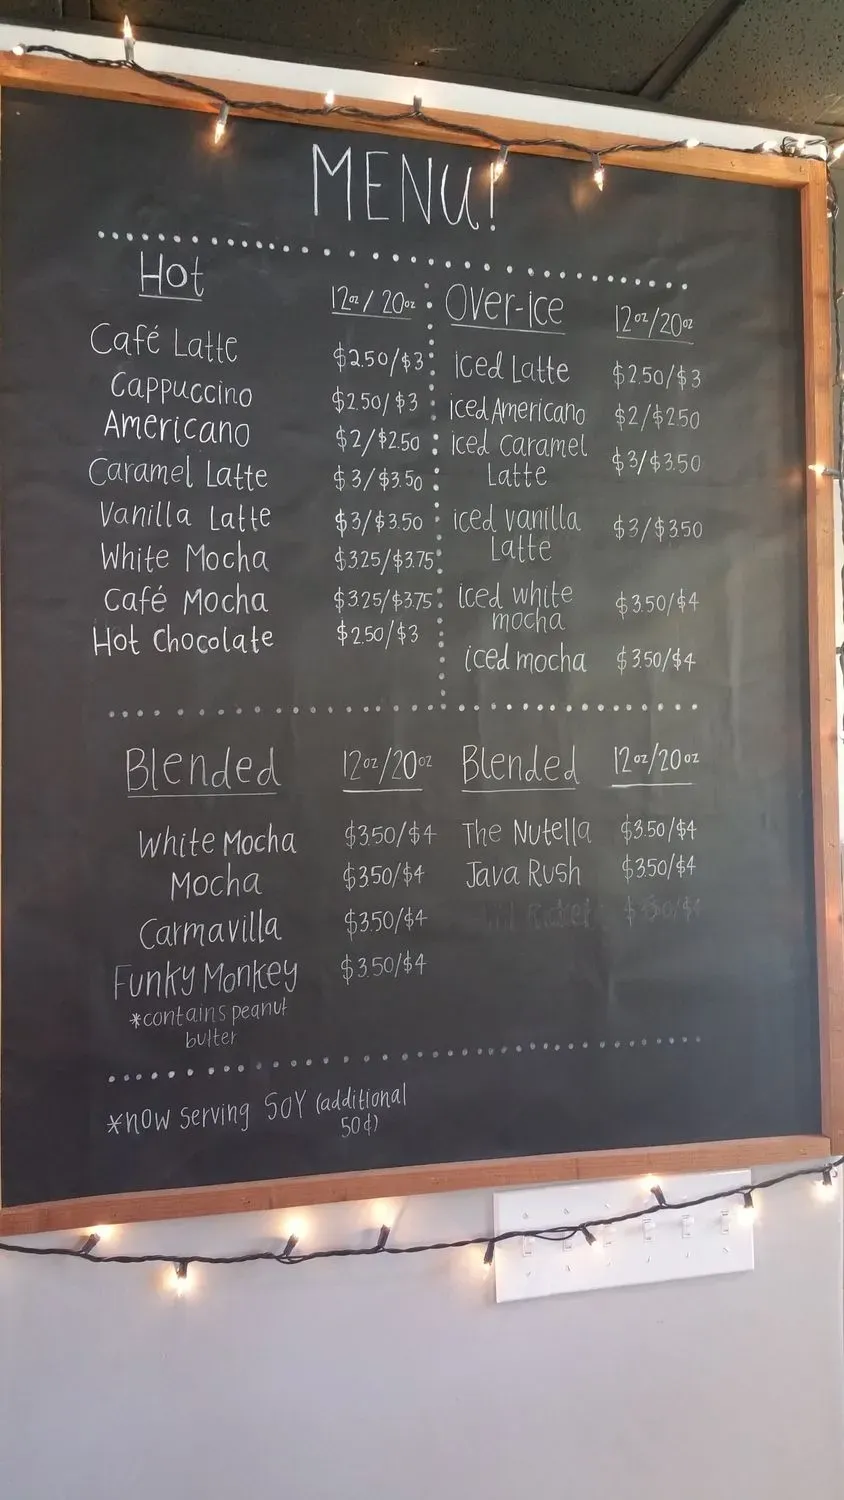 MENU!
Hot 12oz/20oz
Café Latte $2.50/$3
Cappuccino $2.50/$3
Americano $2/$2.50
Caramel Latte $3/$3.50
Vanilla Latte $3/$3.50
White Mocha $3.25/$3.75
Café Mocha $3.25/$3.75
Hot Chocolate $2.50/$3
Over-ice 12oz/20oz
iced Latte $2.50/$3
iced Americano $2/$2.50
iced caramel
Latte $3/$3.50
iced vanilla
Latte $3/$3.50
iced white
mocha $3.50/$4
iced mocha $3.50/$4
Blended 12oz/20oz
White Mocha $3.50/$4
Mocha $3.50/$4
Carmavilla $3.50/$4
Funky Monkey $3.50/$4
*contains peanut
butter
Blended 12oz/20oz
The Nutella $3.50/$4
Java Rush $3.50/$4
*now serving SOY (additional
50¢)